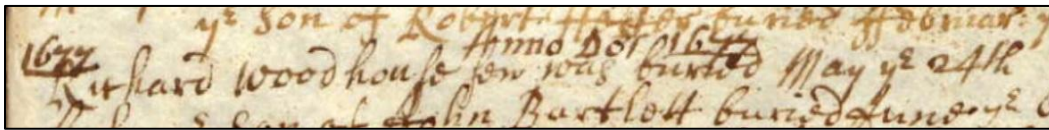 yͤ Son of Robert buried ffebruar: y
Anno Doi 1677
1677
Richard Woodhouse sen was buried May yͤ 24th
Son of John Bartlett buried June yͤ